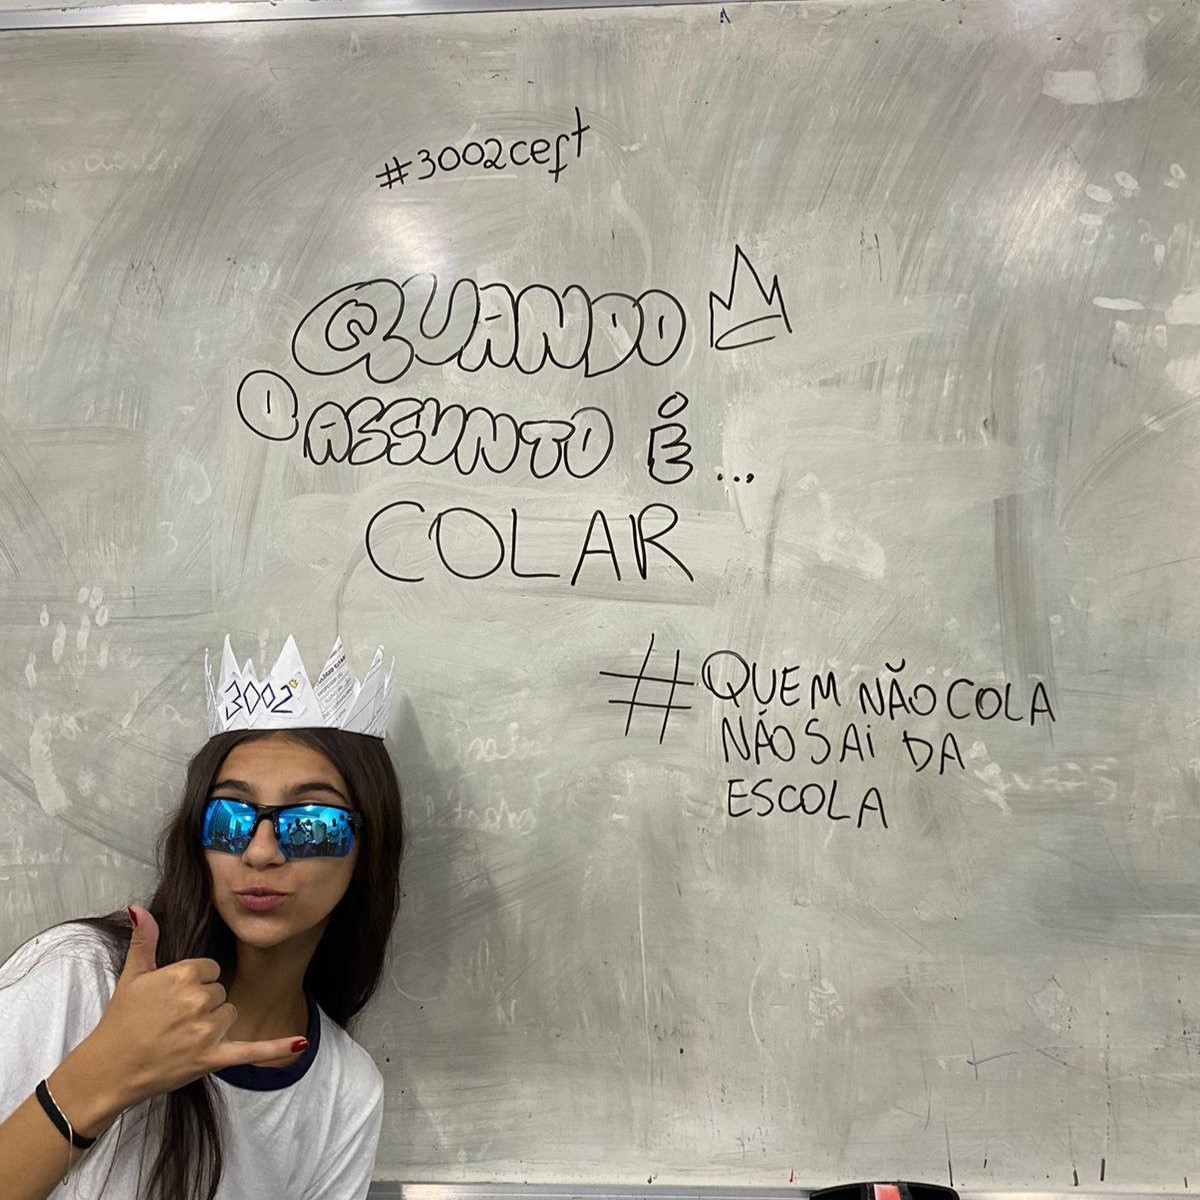 #3002ceft
QUANDO
O ASSUNTO É...
COLAR
#QUEM NÃO COLA
NÃO SAI DA
ESCOLA
3002